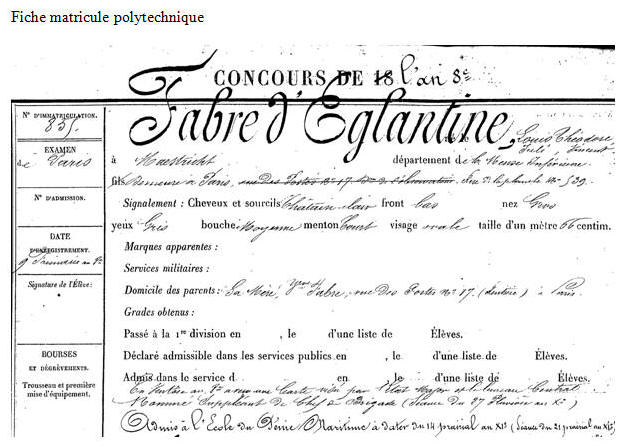 Fiche matricule polytechnique
CONCOURS DE 18 l'an 8e
Fabre d'Eglantine,
Louis Théodore
Jule, Vincent
N° D'IMMATRICULATION.
835.
EXAMEN
de Paris
N° D'ADMISSION.
DATE
D'ENREGISTREMENT.
9 Frimaire an
Signature de l'Élève:
BOURSES
ET DÉGRÈVEMENTS.
Trousseau et première
mise d'équipement.
à Maestricht département de la Meuse Inférieure
fils demeure à Paris, rue des Postes N° 17 N° 539.
Signalement : Cheveux et sourcils Châtain clair front bas nez Gros
yeux Gris bouche Moyenne menton Court visage ovale taille d'un mètre 66 centim.
Marques apparentes :
Services militaires :
Domicile des parents : Sa Mère, Fabre, rue des Postes n° 17. à Paris.
Grades obtenus :
Passé à la 1re division en , le d'une liste de Élèves.
Déclaré admissible dans les services publics en , le d'une liste de Élèves.
Admis dans le service d en , le d'une liste de Élèves.
une Carte par l'Etat Major et le bureau Central
Nommé Suppléant de Chef de Brigade (Séance du 27 Pluviose an XI)
Admis à l'École du Génie Maritime à dater du 14 prairial an XI (Séance du 21 prairial an XI)